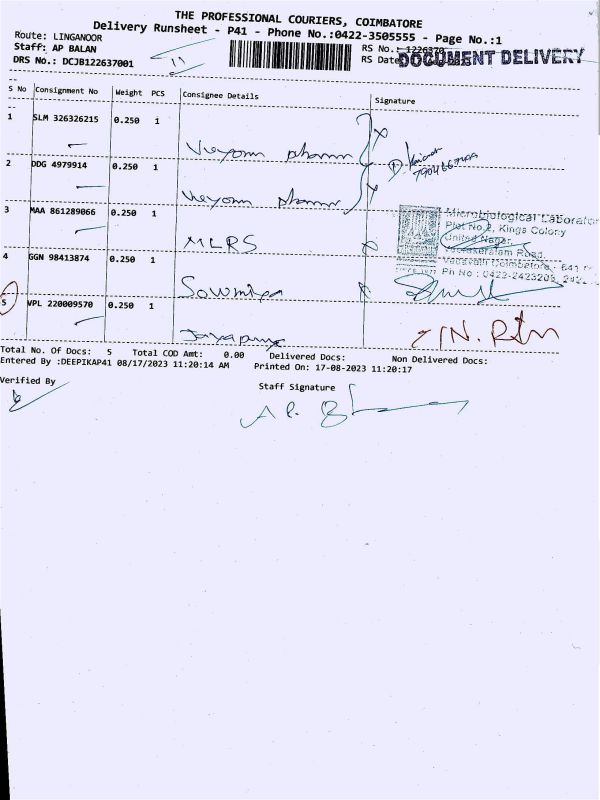 THE PROFESSIONAL COURIERS, COIMBATORE
Delivery Runsheet - P41 - Phone No.:0422-3505555 - Page No.:1
Route: LINGANOOR
RS No.: 1226370
Staff: AP BALAN
RS Date
DOCUMENT DELIVERY
DRS No.: DCJB122637001
S No Consignment No Weight PCS Consignee Details Signature
1 SLM 326326215 0.250 1
pharma
2 DDG 4979914 0.250 1
pharma
3 MAA 861289066 0.250 1
MLRS
Microbiological Laborator
Plot No.2, Kings Colony
United Nagar,
Road,
Coimbatore - 641
Ph No : 0422-2423209,
4 GGN 98413874 0.250 1
Sowmiya
5 VPL 220009570 0.250 1
Total No. Of Docs: 5 Total COD Amt: 0.00 Delivered Docs: Non Delivered Docs:
Entered By :DEEPIKAP41 08/17/2023 11:20:14 AM Printed On: 17-08-2023 11:20:17
Verified By
Staff Signature